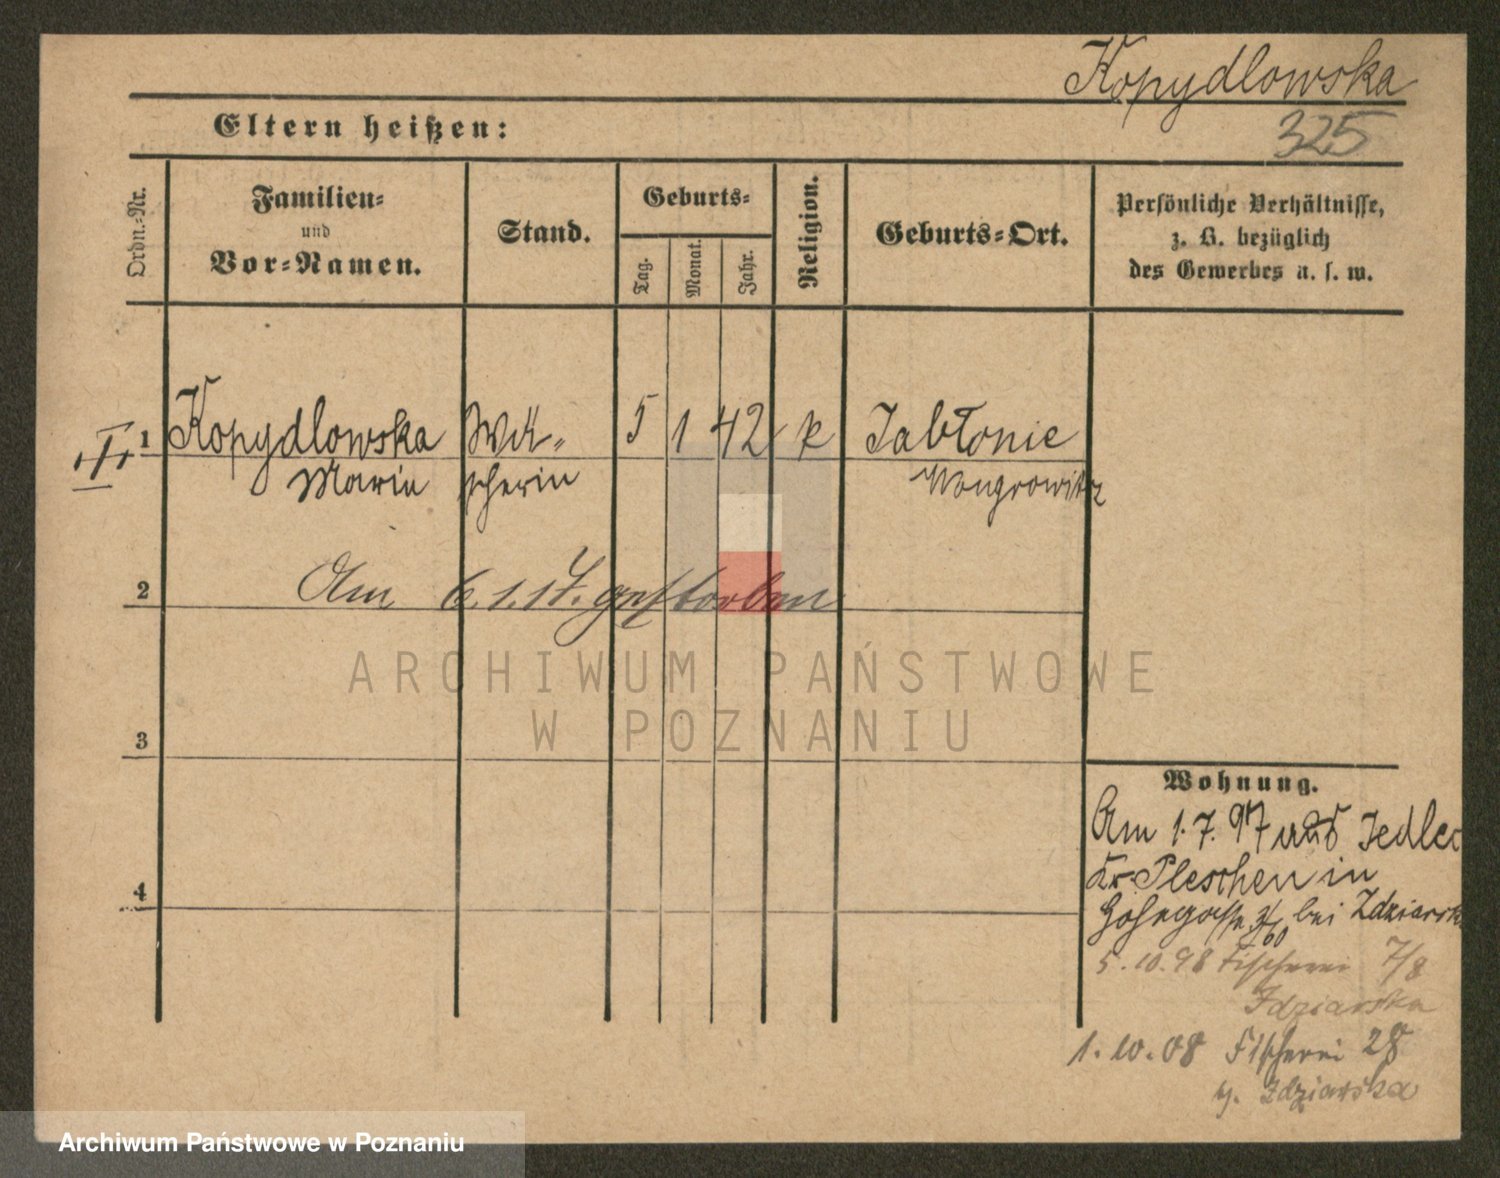 Kopydlowska
325
Eltern heißen:
Ordn.-Nr.
Familien-
und
Vor-Namen.
Stand.
Geburts-
Tag.
Monat.
Jahr.
Religion.
Geburts-Ort.
Persönliche Verhältnisse,
z. B. bezüglich
des Gewerbes u. s. w.
1 Kopydlowska 5 1 42 k Jabłonie
Maria scherin Wongrowitz
2 Am 6.1.17. gestorben
ARCHIWUM PAŃSTWOWE
W POZNANIU
3
4
Wohnung.
Am 1.7.97 aus Jedlec
Kr. Pleschen in
bei Zdziarsk
5.10.98 Fischerei 7/8
Zdziarska
1.10.08 Fischerei 28
Zdziarska
Archiwum Państwowe w Poznaniu